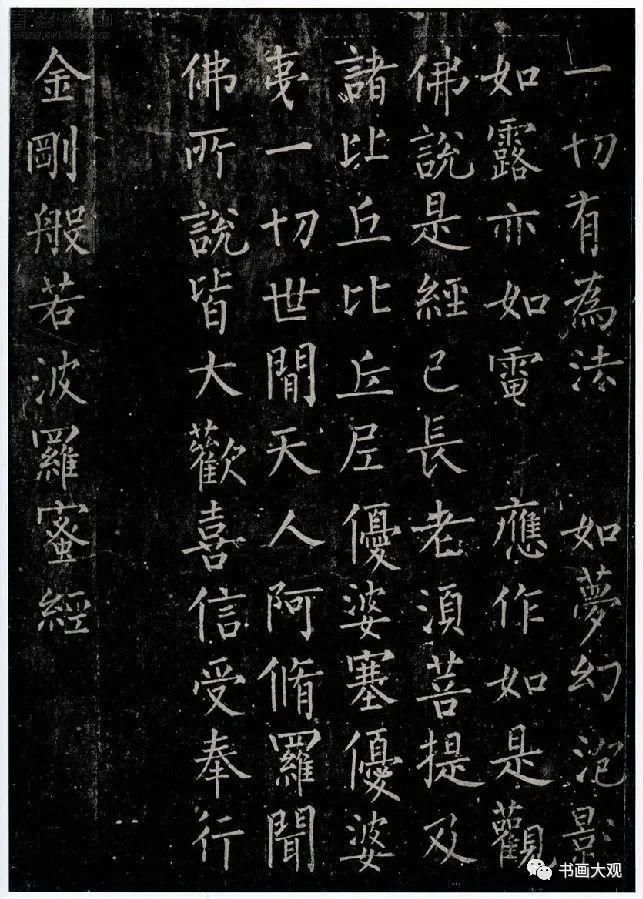 一切有為法 如夢幻泡影
如露亦如電 應作如是觀
佛說是經已長老須菩提及
諸比丘比丘尼優婆塞優婆
夷一切世間天人阿脩羅聞
佛所說皆大歡喜信受奉行
金剛般若波羅蜜經
书画大观